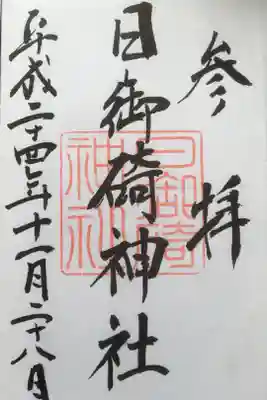 参拝
日御碕神社
平成二十四年十一月二十八日
日御碕
神社